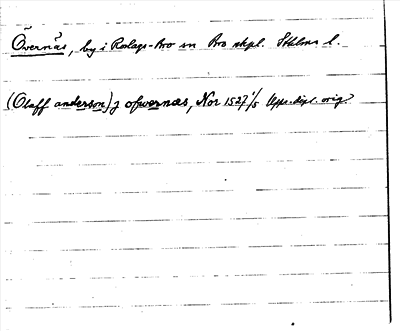 Övernäs, by i Roslags-Bro sn Bro skpl. Sthlms l.
(Olaff anderson) j ofwernæs, Nor 1527 1/5 Upps. dipl. orig.